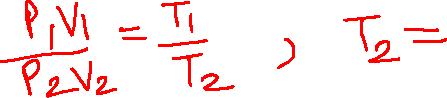 P₁V₁/P₂V₂ = T₁/T₂ , T₂ =